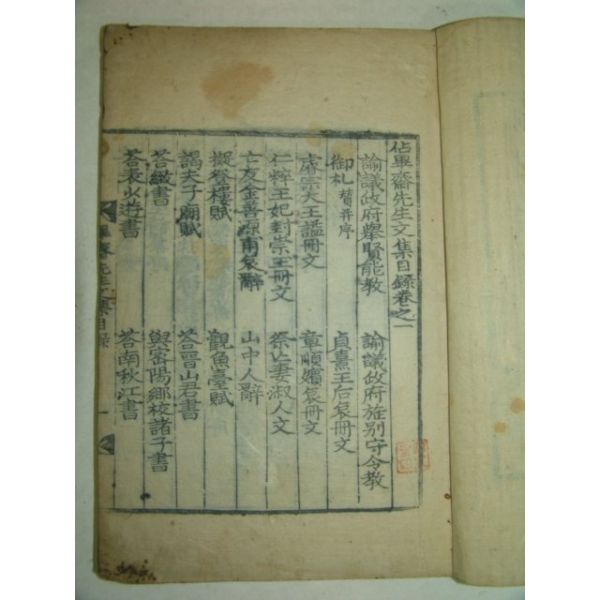 佔畢齋先生文集目錄卷之一
諭議政府擧賢能教 諭議政府旌別守令教
御札 賛并序 貞熹王后哀冊文
睿宗大王謚冊文 章順嬪哀冊文
仁粹王妃封崇王冊文 祭亡妻淑人文
亡友金善源甫哀辭 山中人辭
擬登樓賦 觀魚臺賦
謁夫子廟賦 荅晋山君書
荅緻書 與密陽鄉校諸子書
荅裵火遊書 荅南秋江書
畢齋先生文集目錄 一